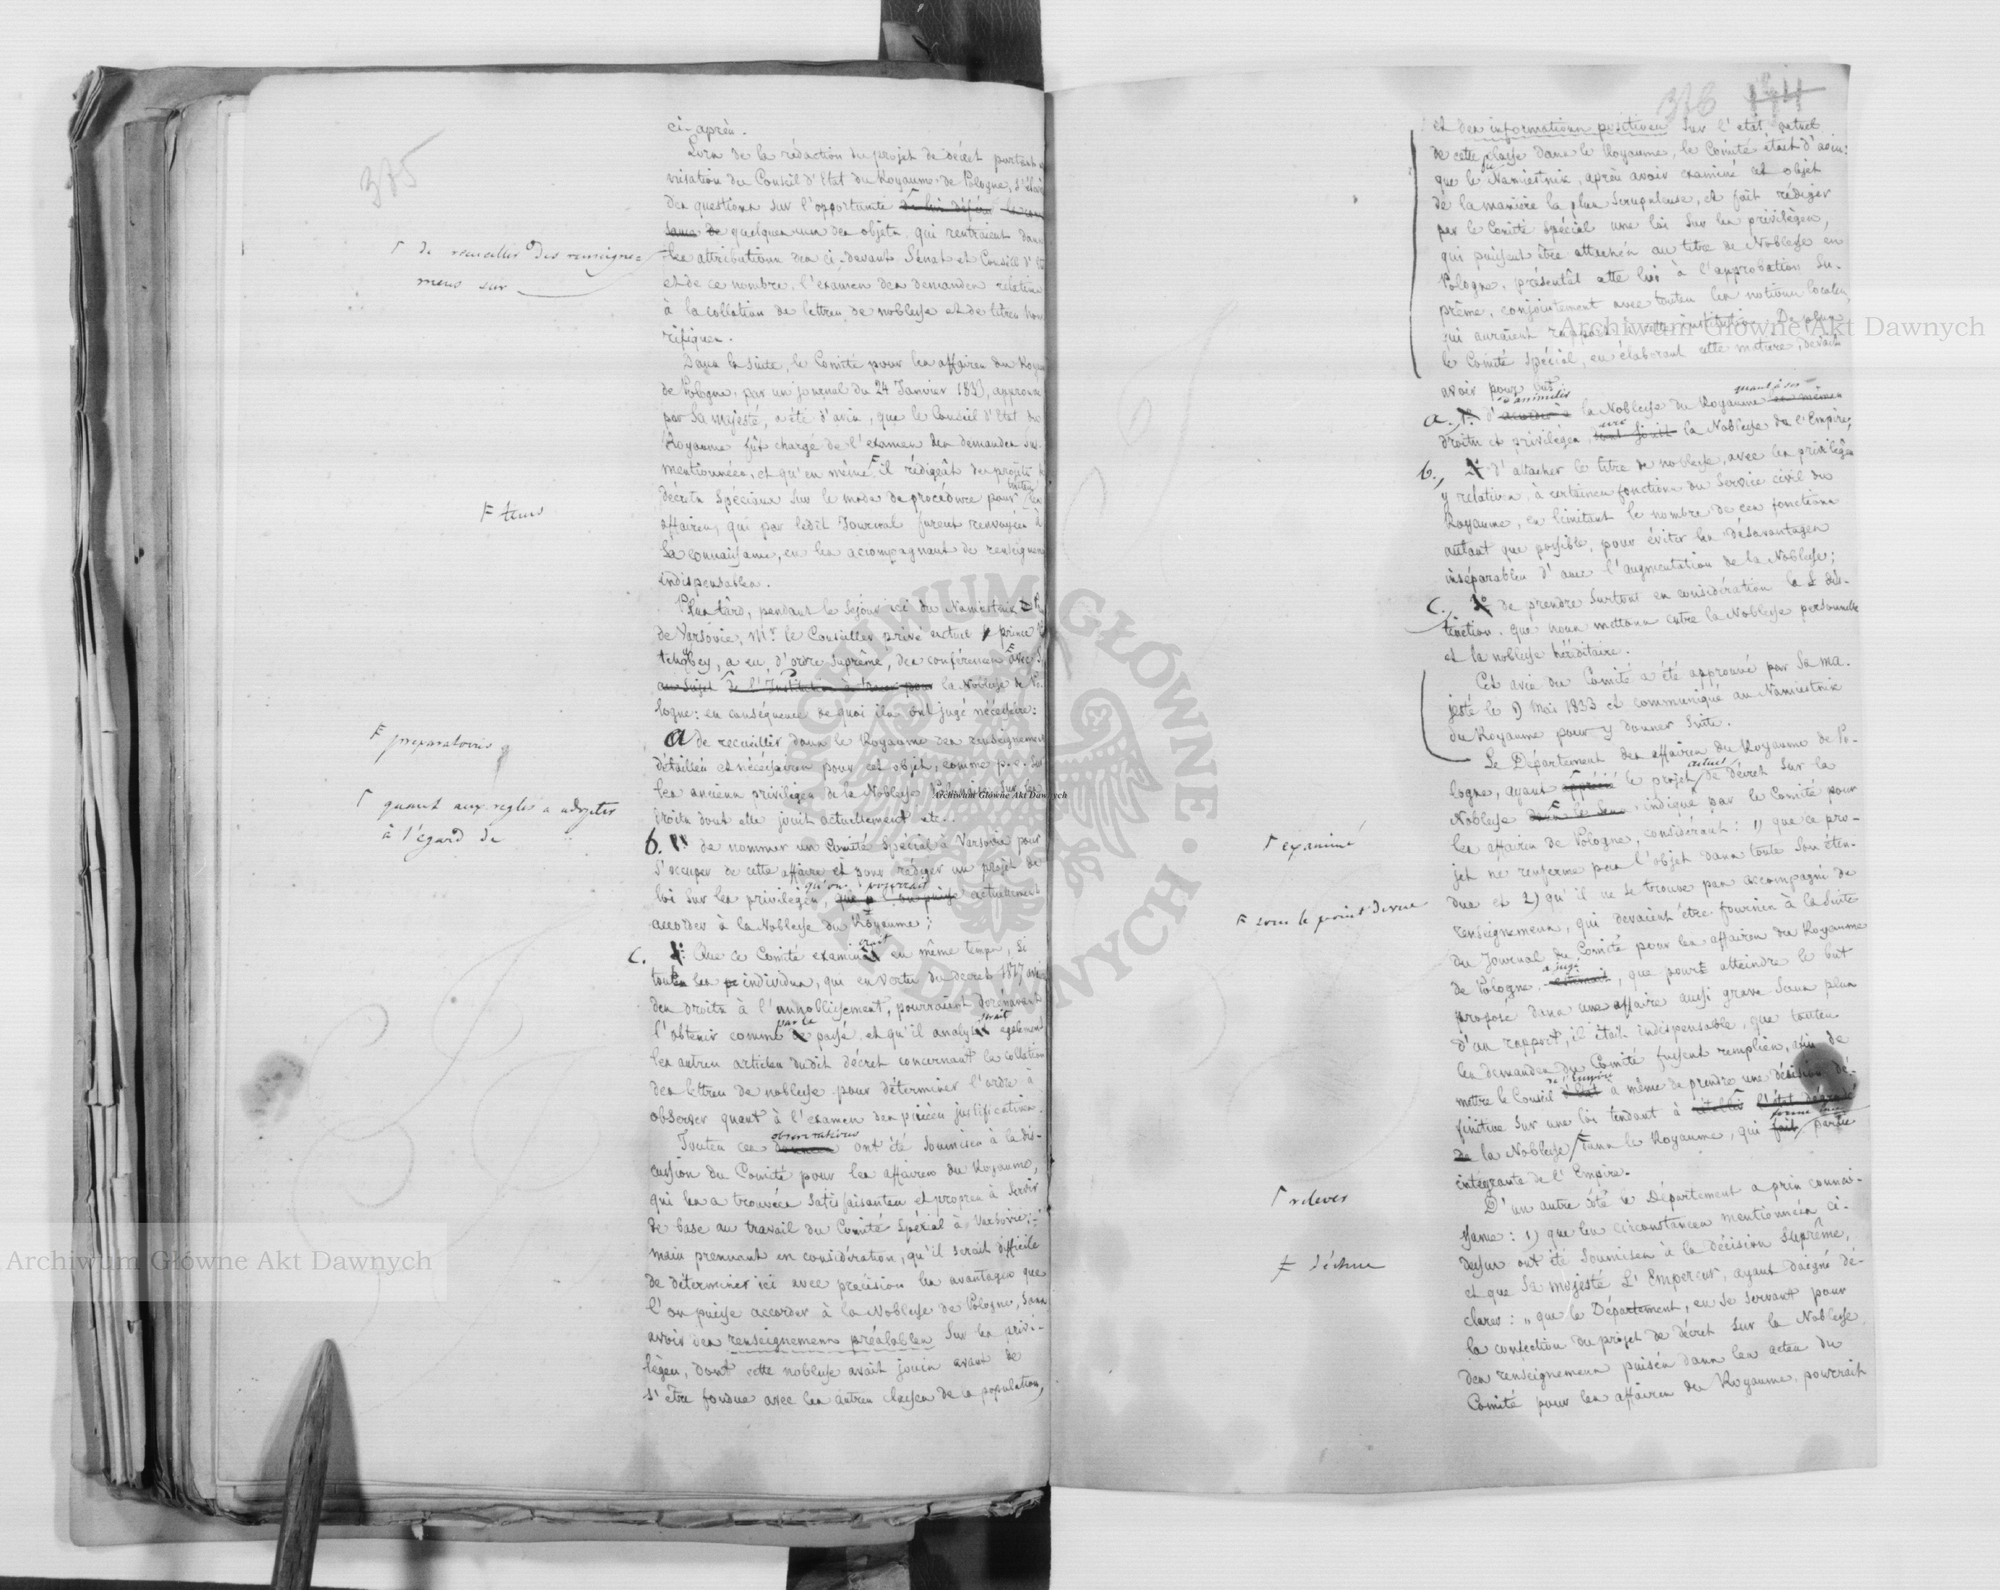 375
ci-après.
Lors de la rédaction du projet de décret portant
nisation du Conseil d'Etat du Royaume de Pologne, s'
des questions sur l'opportunité de lui déférer
quelques uns des objets, qui rentraient dans
les attributions des ci-devants Sénat et Conseil d'
et de ce nombre, l'examen des demandes relatives
à la collation de lettres de noblesse et de titres hono
rifiques.
Dans la suite, le Comité pour les affaires du Royaume
de Pologne, par un journal du 24 Janvier 1833, approuvé
par Sa Majesté, a été d'avis, que le Conseil d'Etat du
Royaume fût chargé de l'examen des demandes sus-
mentionnées, et qu'en même F il rédigeât des projets de
décrets spéciaux sur le mode de procédure pour toutes les
affaires, qui par ledit Journal furent renvoyées à
sa connaissance, en les accompagnant de renseignemens
indispensables.
Plus tard, pendant le séjour ici du Namiestnik
de Varsovie, Mr. le Conseiller privé actuel le prince
tchoubey, a eu, d'ordre suprême, des conférences F avec
au sujet de l'Institution la Noblesse de Po-
logne: en conséquence de quoi ils ont jugé nécessaire:
a de recueillir dans le Royaume des renseignemens
détaillés et nécessaires pour cet objet, comme p. e. sur
les anciens privilèges de la Noblesse Polonaise, sur les
droits dont elle jouit actuellement etc.
b. de nommer un Comité spécial à Varsovie pour
s'occuper de cette affaire et pour rédiger un projet de
loi sur les privilèges, qu'on pourrait actuellement
accorder à la Noblesse du Royaume;
c. Que ce Comité examinerait en même temps, si
tous les individus, qui en vertu du décret 1817 avaient
des droits à l'annoblissement, pourraient dorénavant
l'obtenir comme par le passé, et qu'il analyserait également
les autres articles dudit décret concernant la collation
des lettres de noblesse pour déterminer l'ordre à
observer quant à l'examen des pièces justificatives.
Toutes ces observations ont été soumises à la dis-
cussion du Comité pour les affaires du Royaume,
qui les a trouvées satisfaisantes et propres à servir
de base au travail du Comité spécial à Varsovie:
mais prennant en considération, qu'il serait difficile
de déterminer ici avec précision les avantages que
l'on puisse accorder à la Noblesse de Pologne, sans
avoir des renseignemens préalables sur les privi-
lèges, dont cette noblesse avait joui avant de
s'être fondue avec les autres classes de la population,
Γ de recueillir des renseigne=
mens sur
F tems
F preparatoires
Γ quant aux regles a adopter
à l'égard de
376 144
et des informations positives sur l'etat actuel
de cette classe dans le Royaume, le Comité était d'avis:
que le Namiestnik, après avoir examiné cet objet
de la manière la plus scrupuleuse, et fait rédiger
par le Comité spécial une loi sur les privilèges,
qui puissent être attachés au titre de Noblesse en
Pologne, présentât cette loi à l'approbation Su-
prême, conjointement avec toutes les notions locales,
qui auraient rapport à cette institution. De plus
le Comité spécial, en élaborant cette matière, devait
avoir pour but:
a. 1° d'assimiler la Noblesse du Royaume quant à ses
droits et privilèges avec la Noblesse de l'Empire;
b., d'attacher le titre de noblesse, avec les privilèges
y relatifs, à certaines fonctions du Service civil du
Royaume, en limitant le nombre de ces fonctions
autant que possible, pour éviter les désavantages
inséparables d'avec l'augmentation de la Noblesse;
c., de prendre surtout en considération la dis-
tinction que nous mettons entre la Noblesse personnelle
et la noblesse héréditaire.
Cet avis du Comité a été approuvé par Sa Ma-
jesté le 9 Mai 1833 et communiqué au Namiestnik
du Royaume pour y donner suite.
Le Département des affaires du Royaume de Po-
logne, ayant le projet actuel de décret sur la
Noblesse F indiqué par le Comité pour
les affaires de Pologne, considérant: 1) que ce pro-
jet ne renferme pas l'objet dans toute son éten-
due et 2) qu'il ne se trouve pas accompagné de
renseignemens, qui devaient être fournis à la suite
du Journal du Comité pour les affaires du Royaume
de Pologne, a jugé, que pour atteindre le but
proposé dans une affaire aussi grave sans plus
d'un rapport, il était indispensable, que toutes
les demandes du Comité fussent remplies, afin de
mettre le Conseil de l'Empire à même de prendre une décision dé-
finitive sur une loi tendant à
la Noblesse dans le Royaume, qui forme une partie
intégrante de l'Empire.
D'un autre côté le Département a pris connai-
ssance: 1) que les circonstances mentionnées ci-
dessus ont été soumises à la décision suprême,
et que Sa Majesté L'Empereur, ayant daigné dé-
clarer: „ que le Département, en se servant pour
la confection du projet de décret sur la Noblesse
des renseignemens puisés dans les actes du
Comité pour les affaires du Royaume, pourrait
Γ examiné
F sous le point de vue
Γ relever
F déchue
Archiwum Główne Akt Dawnych
Archiwum Główne Akt Dawnych
Archiwum Główne Akt Dawnych
ARCHIWUM GŁÓWNE AKT DAWNYCH